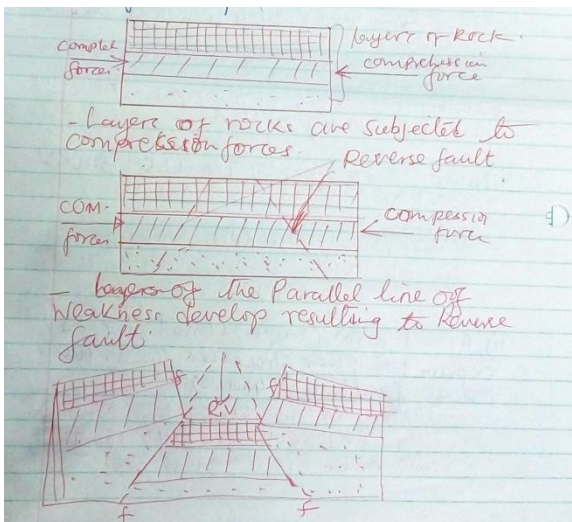 layers of Rock.
complet
forces
comprehession
force
- Layers of rocks are subjected to
compression forces.
Reverse fault
COM-
forces
compession
force
- Layers of the Parallel line of
Weakness develop resulting to Reverse
fault.
f
f
RV
f
f